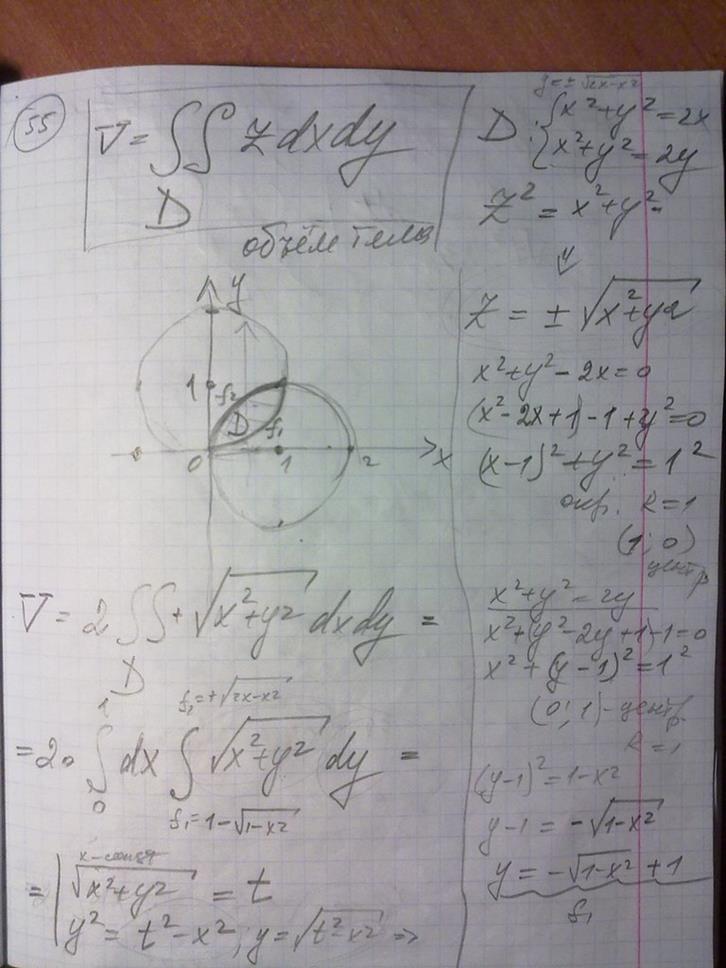 55
V = ∬ z dxdy
D
объём тела
y = ± √(2x-x²)
D: { x²+y² = 2x
x²+y² = 2y
z² = x²+y²
z = ± √(x²+y²)
x²+y²-2x=0
(x²-2x+1)-1+y²=0
(x-1)²+y²=1²
окр. R=1
(1; 0)
центр
x²+y²=2y
x²+(y²-2y+1)-1=0
x²+(y-1)²=1²
(0; 1)-центр
R=1
(y-1)²=1-x²
y-1 = -√(1-x²)
y = -√(1-x²) + 1
f₁
y
1
f₂
D
f₁
0
1
2
x
V = 2 ∬ + √(x²+y²) dxdy =
D
1 f₂=+√(2x-x²)
= 2 · ∫ dx ∫ √(x²+y²) dy =
0 f₁=1-√(1-x²)
x-const
= | √(x²+y²) = t
y² = t²-x²; y=√(t²-x²) =>